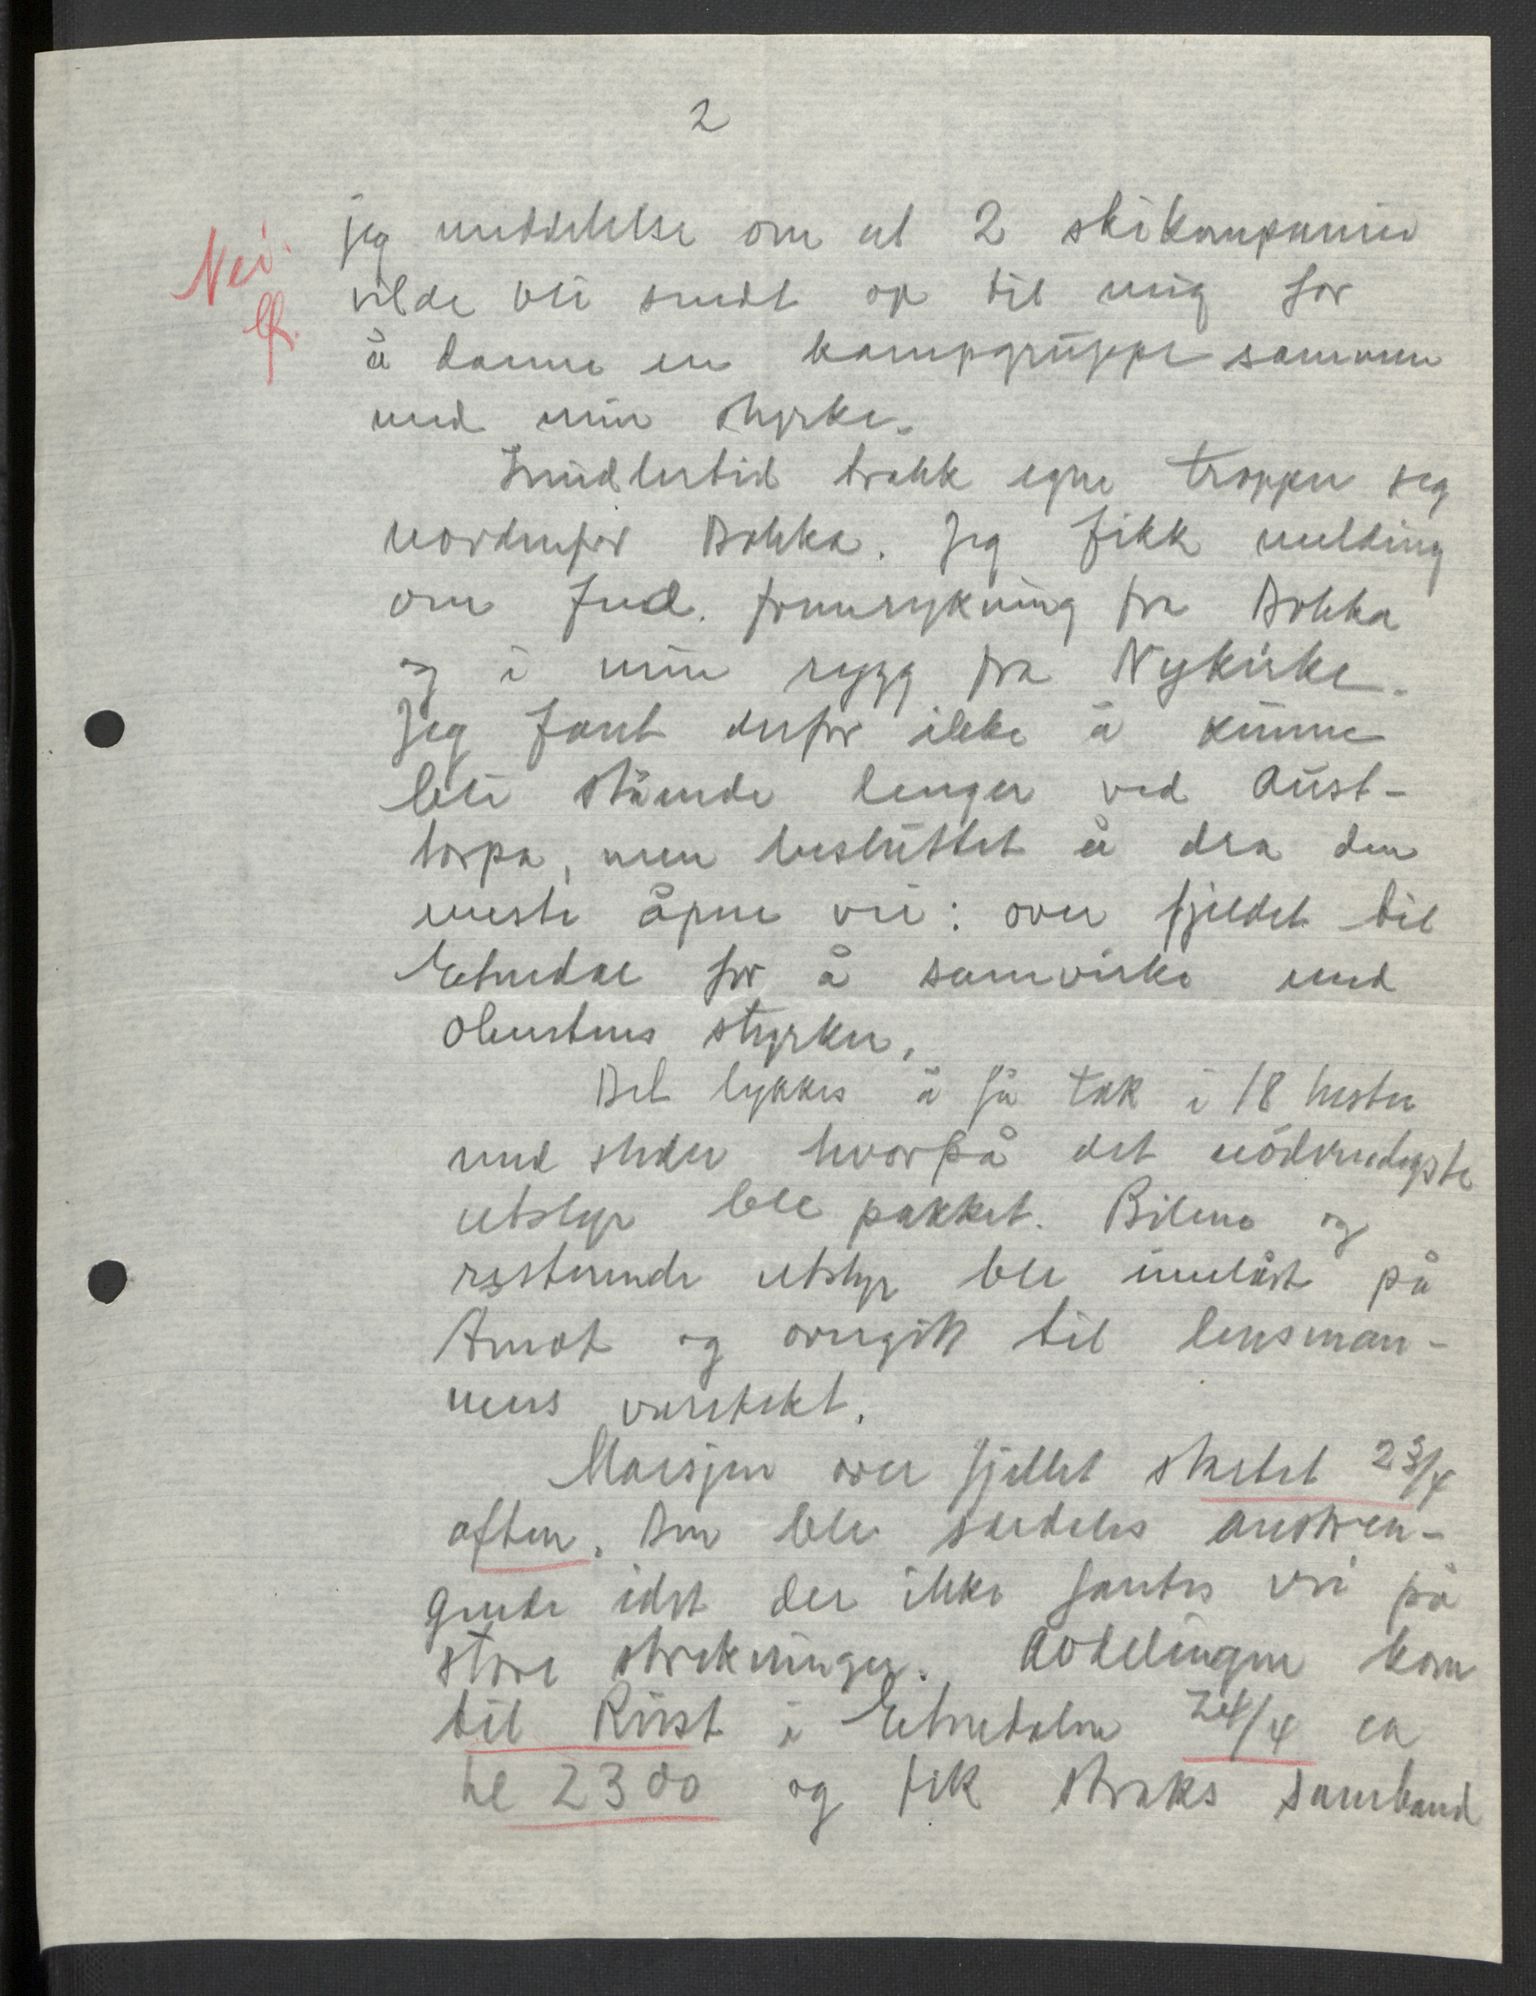 2
Nei.
jeg meddelelse om at 2 skikompanier
vilde bli sendt op til mig for
å danne en kampgruppe sammen
med min styrke.
Imidlertid trakk egne tropper seg
nordenfor Dokka. Jeg fikk melding
om fiend. fremrykning fra Dokka
og i min rygg fra Nykirke.
Jeg fant derfor ikke å kunne
bli stående lenger ved Aust-
torpa, men besluttet å dra den
eneste åpne vei: over fjeldet til
Etnedal for å samvirke med
oberstens styrker.
Det lykkes å få tak i 18 hester
med sleder hvorpå det nödvendigste
utstyr ble pakket. Bilene og
resterende utstyr ble innelåst på
Åmot og overgikk til lensman-
nens varetekt.
Marsjen over fjellet startet 23/4
aften. Den ble særdeles anstren-
gende idet der ikke fantes vei på
store strekninger. Avdelingen kom
til Rust i Etnedalen 24/4 ca
kl 2300 og fik straks samband